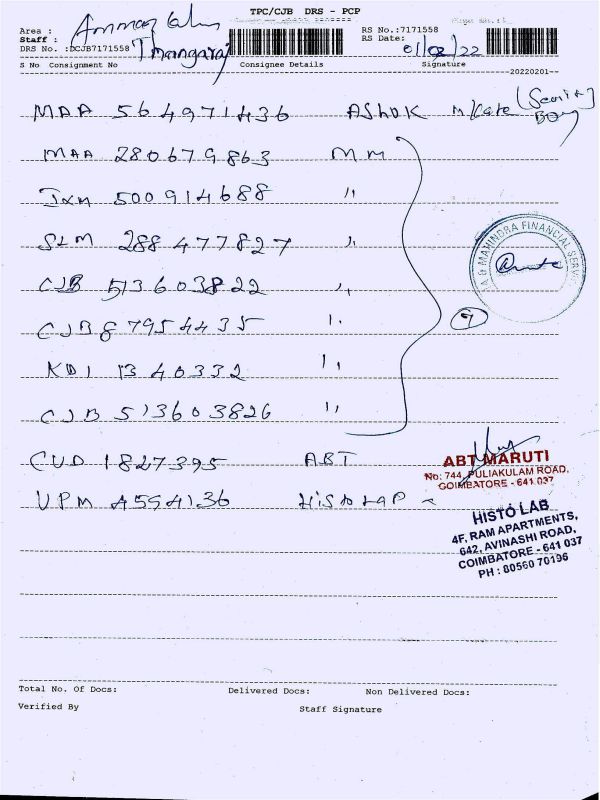 TPC/CJB DRS - PCP
Area :
Staff : Thangaraj
DRS No. :DCJB7171558
RS No.:7171558
RS Date: 01/02/22
S No Consignment No Consignee Details Signature
20220201
MAA 564971436 ASHOK
MAA 280679863 MM
IXM 500914688 ,,
SLM 288477827 ,,
CJB 513603822 ,,
CJB 87954435 ,,
KDI 1340332 ,,
CJB 513603826 ,,
7
& MAHINDRA FINANCIAL SERV
CUD 1827395 ABT
ABT MARUTI
No: 744, PULIAKULAM ROAD,
COIMBATORE - 641 037
UPM 4594136 HISTO LAP
HISTO LAB
4F, RAM APARTMENTS,
642, AVINASHI ROAD,
COIMBATORE - 641 037
PH : 80560 70196
Total No. Of Docs: Delivered Docs: Non Delivered Docs:
Verified By Staff Signature